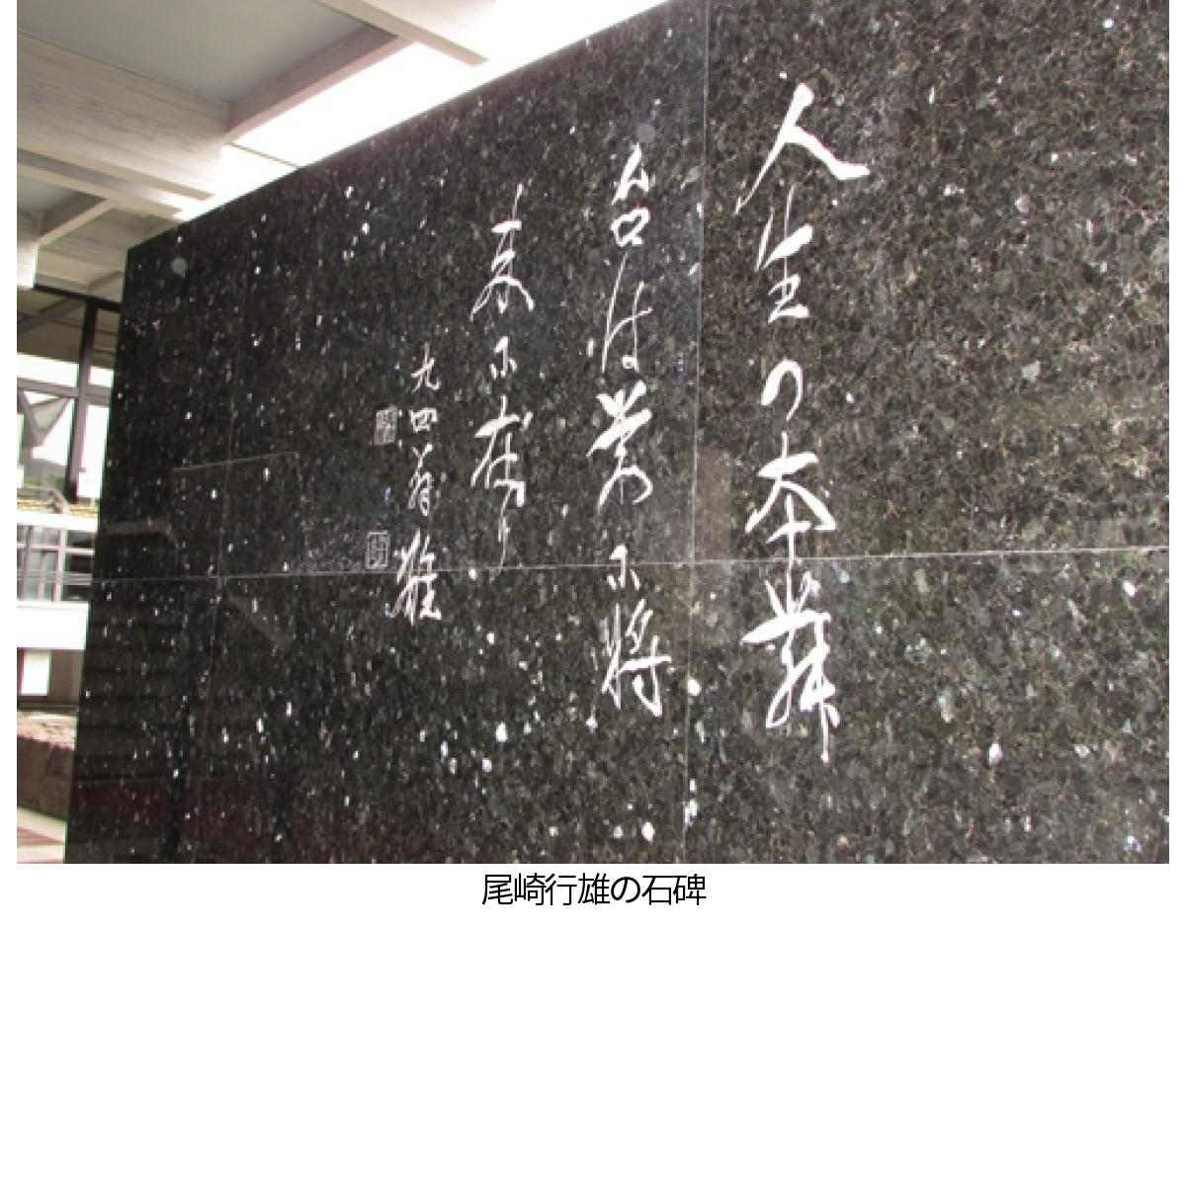 人生の本舞
台は常に将
来に在り
九四翁 雅
尾崎行雄の石碑